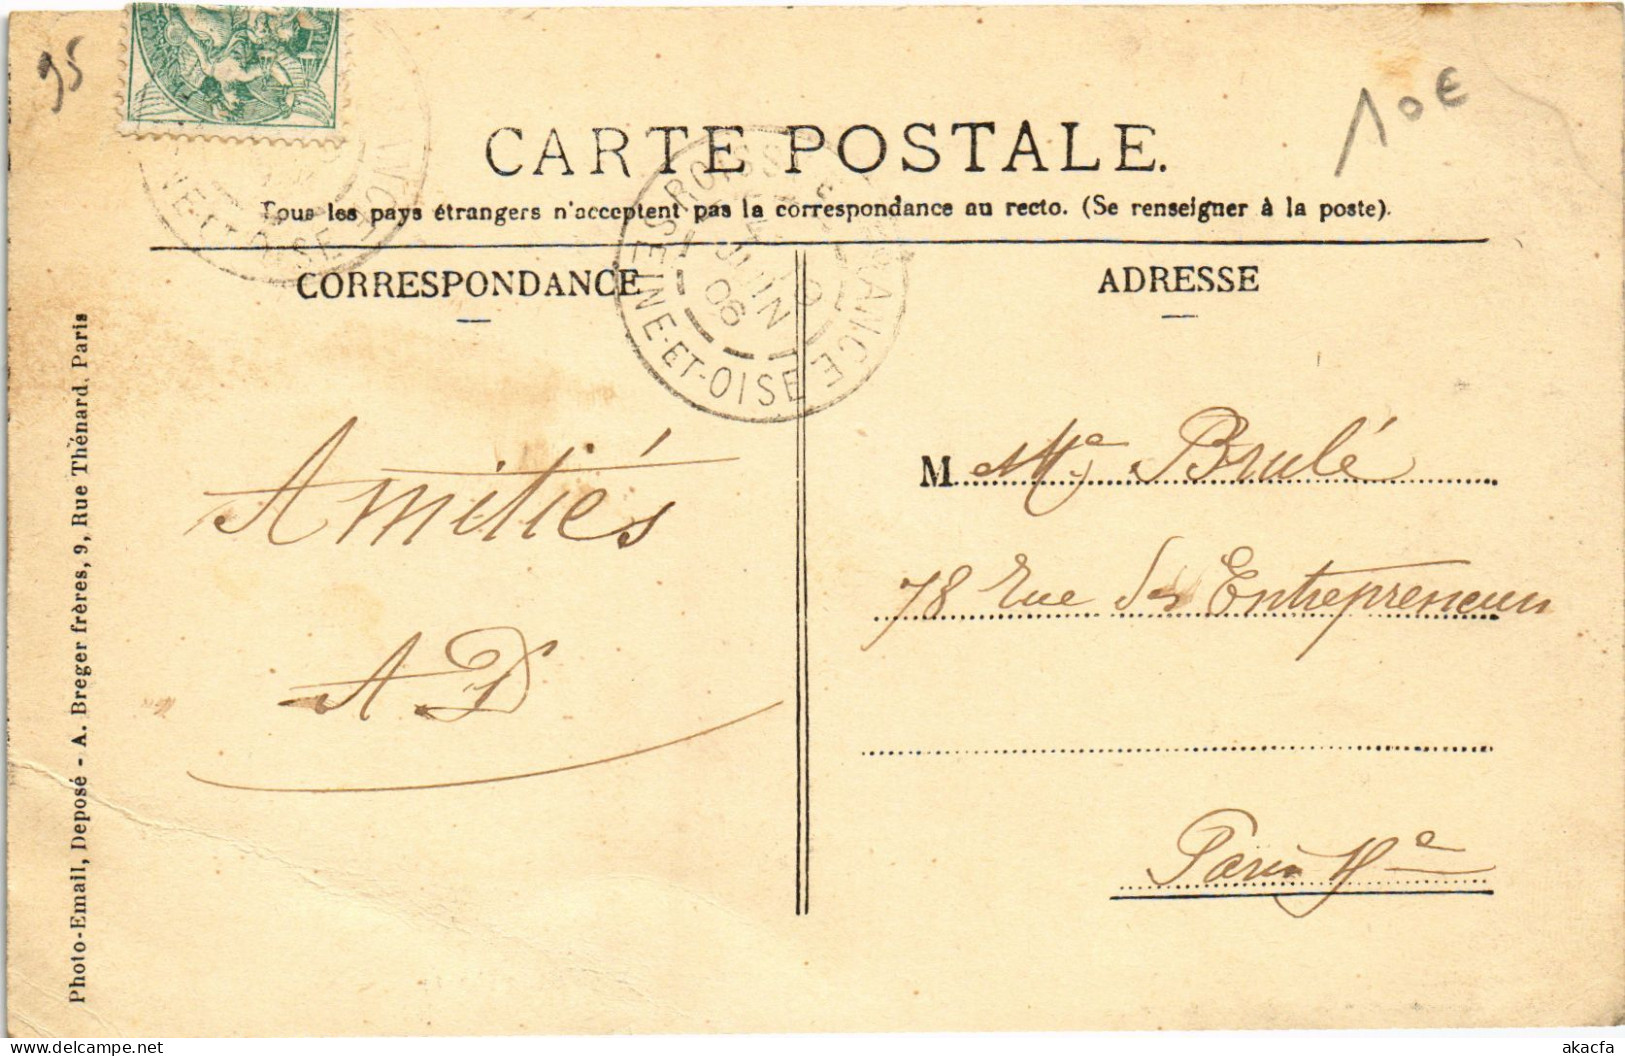 95
10€
CARTE POSTALE.
Tous les pays étrangers n'acceptent pas la correspondance au recto. (Se renseigner à la poste).
CORRESPONDANCE
ADRESSE
ROISSY FRANCE
JUIN
06
SEINE-ET-OISE
Amitiés
A D
M Me Brulé
78 Rue des Entrepreneurs
Paris
Photo-Email, Deposé - A. Breger frères, 9, Rue Thénard, Paris
akacfa